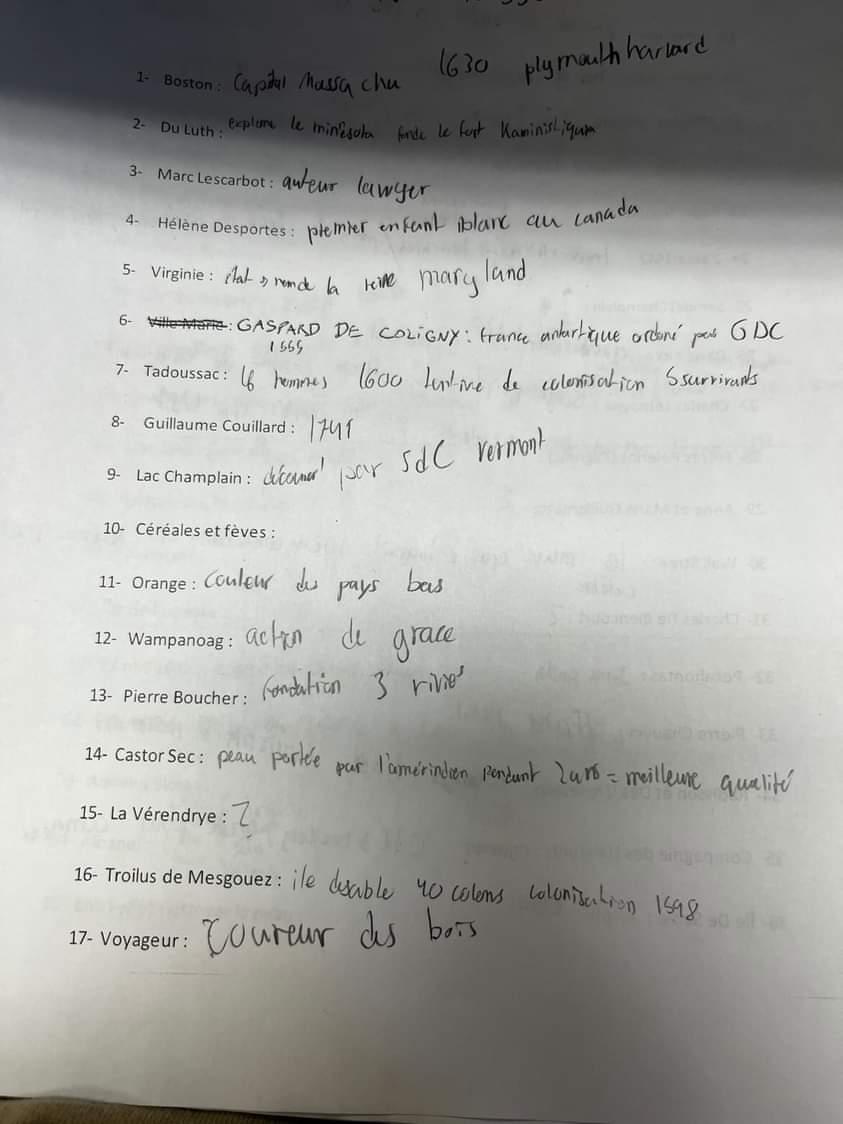 1- Boston : Capital Massachu 1630 plymouth harvard
2- Du Luth : explore le minesota fonde le fort Kaministiqum
3- Marc Lescarbot : auteur lawyer
4- Hélène Desportes : premier enfant blanc au canada
5- Virginie : la reine maryland
6- Ville Marie : GASPARD DE COLIGNY : france antartique ordoné par GDC
1555
7- Tadoussac : 16 hommes 1600 tentive de colonisation 5 survivants
8- Guillaume Couillard :
9- Lac Champlain : par SdC vermont
10- Céréales et fèves :
11- Orange : couleur du pays bas
12- Wampanoag : action de grace
13- Pierre Boucher : fondation 3
14- Castor Sec : peau portée par l'amérindien pendant 2 ans = meilleure qualité
15- La Vérendrye : ?
16- Troilus de Mesgouez : ile desable 40 colons colonisation 1598
17- Voyageur : coureur des bois